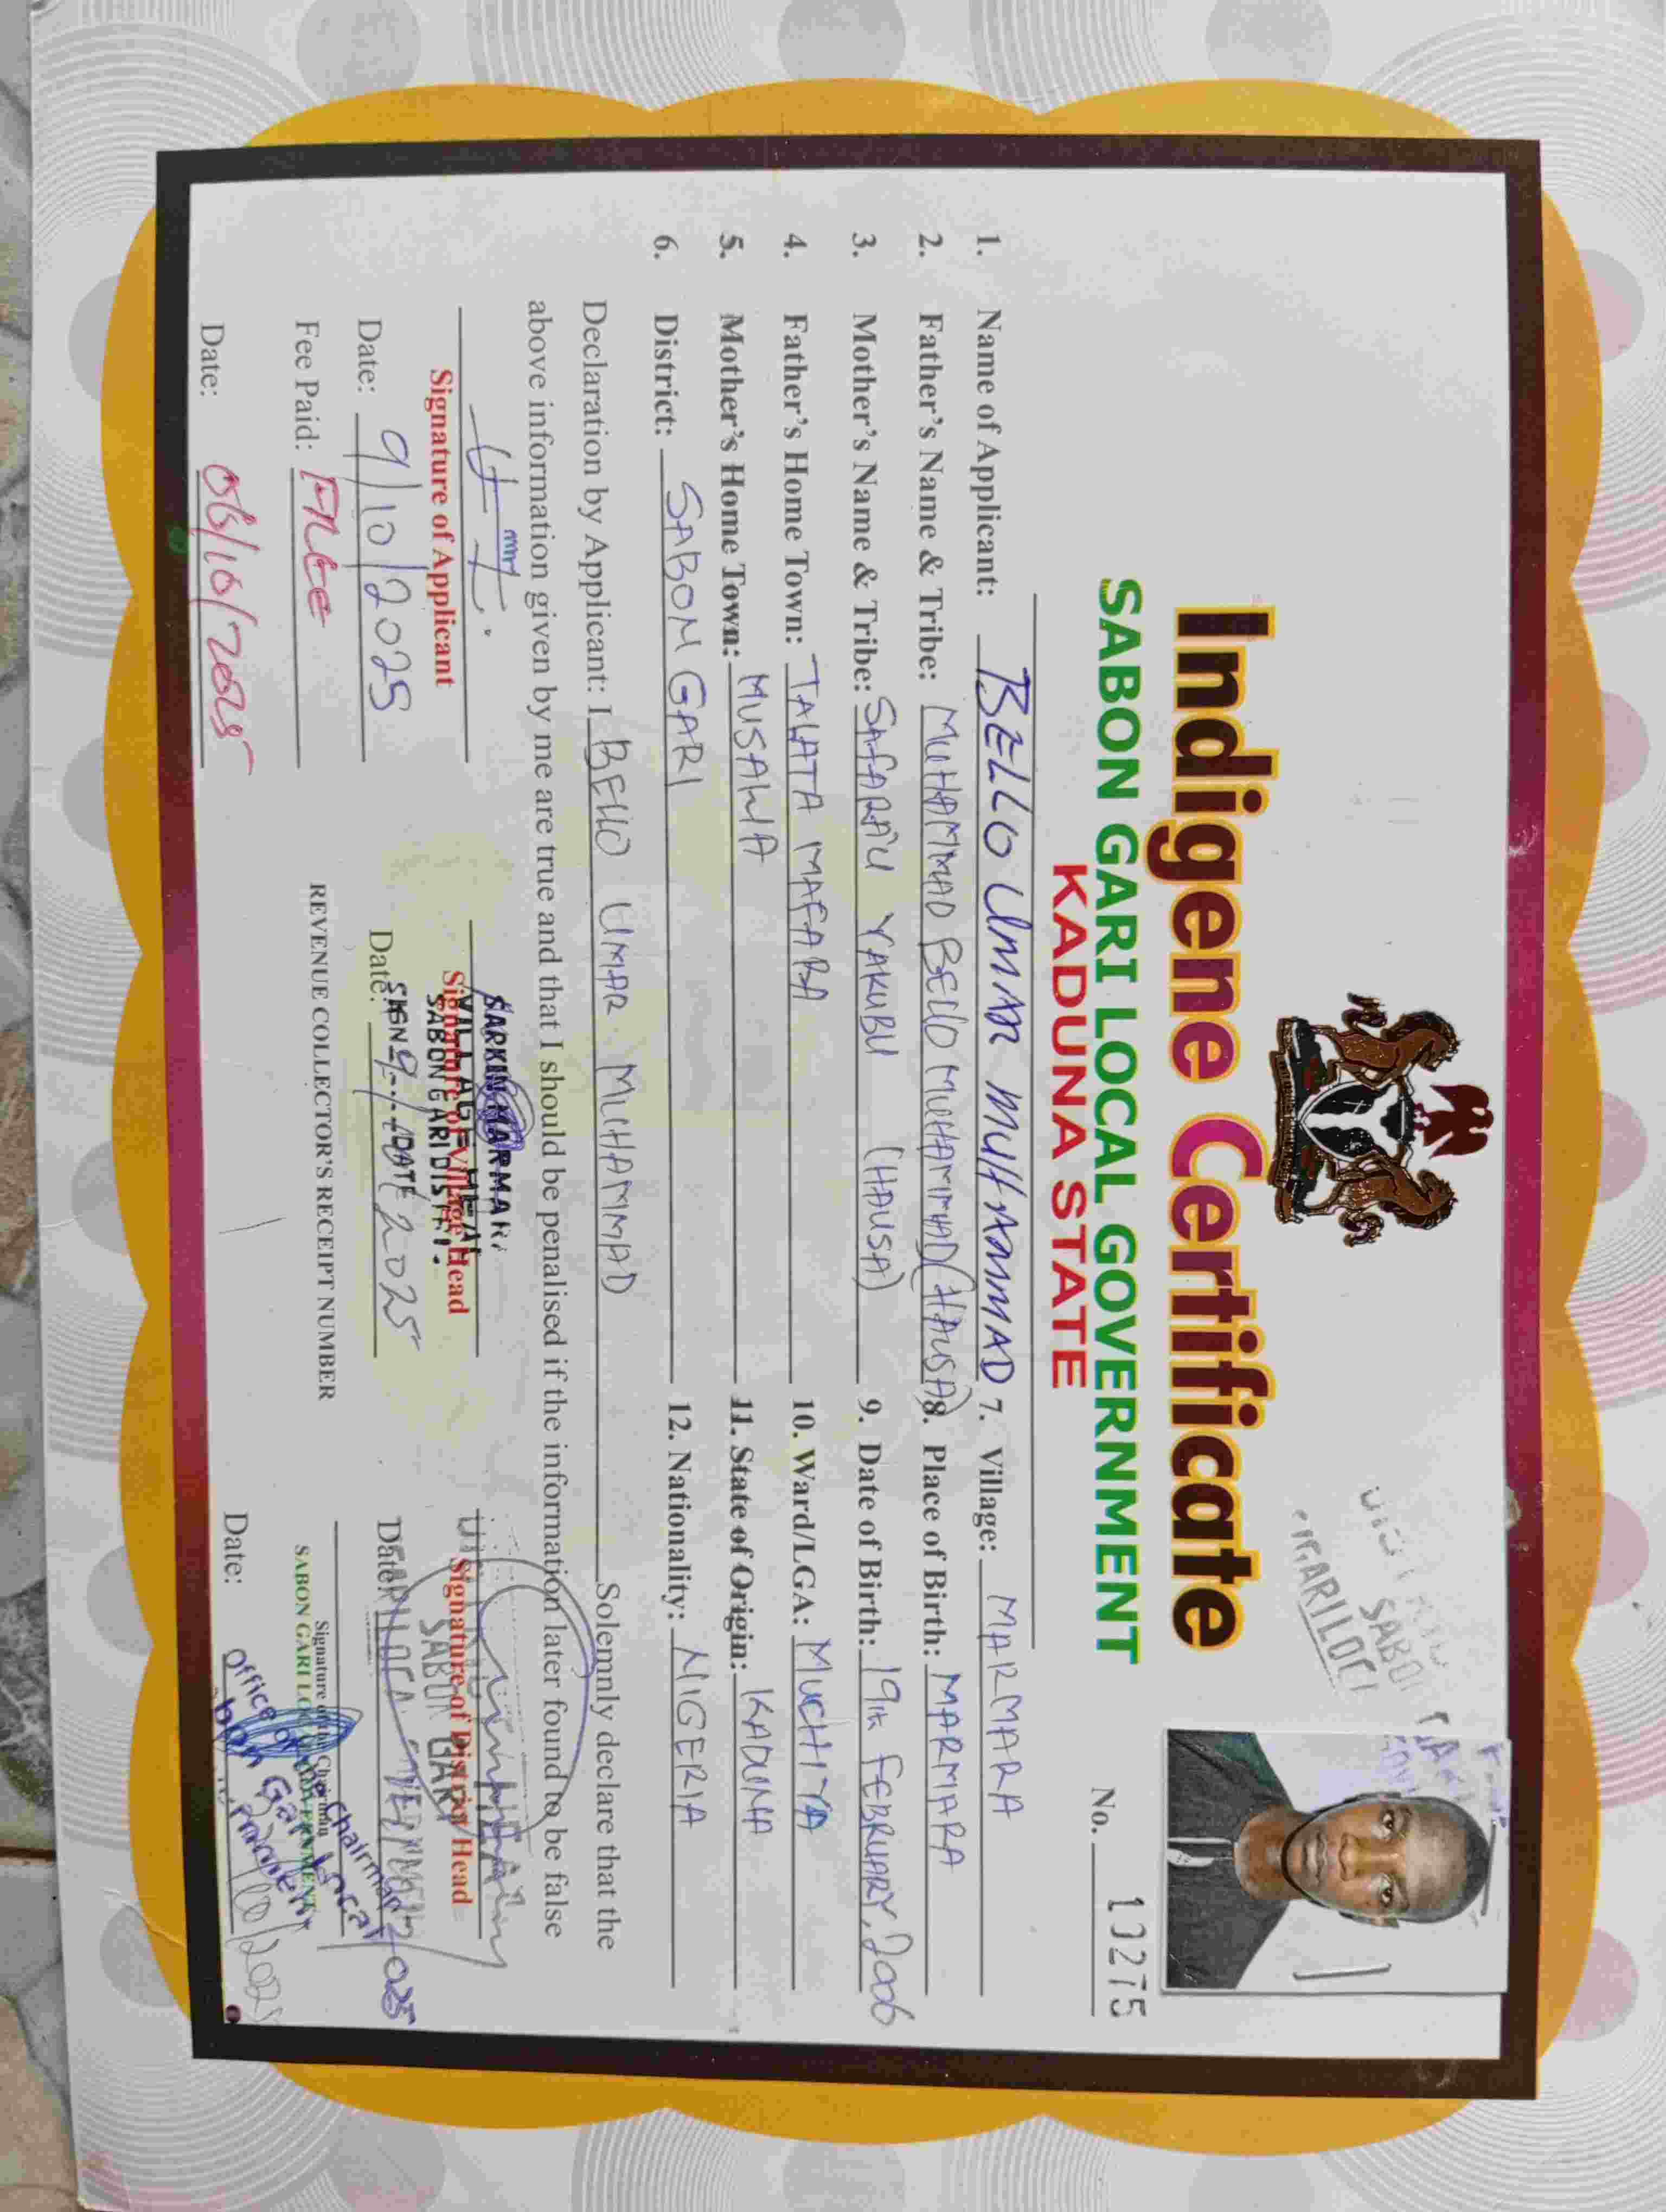 Indigene Certificate
SABON GARI LOCAL GOVERNMENT
KADUNA STATE
No. 10275
1. Name of Applicant: BELLO UMAR MUHAMMAD
2. Father's Name & Tribe: MUHAMMAD BELLO MUHAMMAD (HAUSA)
3. Mother's Name & Tribe: SAFARA'U YAKUBU (HAUSA)
4. Father's Home Town: TALATA MAFARA
5. Mother's Home Town: MUSAWA
6. District: SABON GARI
7. Village: MARMARA
8. Place of Birth: MARMARA
9. Date of Birth: 19th FEBRUARY, 2006
10. Ward/LGA: MUCHIYA
11. State of Origin: KADUNA
12. Nationality: NIGERIA
Declaration by Applicant: I BELLO UMAR MUHAMMAD Solemnly declare that the
above information given by me are true and that I should be penalised if the information later found to be false
Signature of Applicant
Date: 9/10/2025
Fee Paid: FREE
Date: 06/10/2025
SARKIN MARMARA
VILLAGE HEAD
Signature of Village Head
SABON GARI DISTRI
SIGN DATE
Date: 9/10/2025
REVENUE COLLECTOR'S RECEIPT NUMBER
Signature of District Head
SABON GARI
Date: 2025
Signature of the Chairman
SABON GARI LOCAL GOVERNMENT
Office of the Chairman
Sabon Gari Local
Date: /10/2025